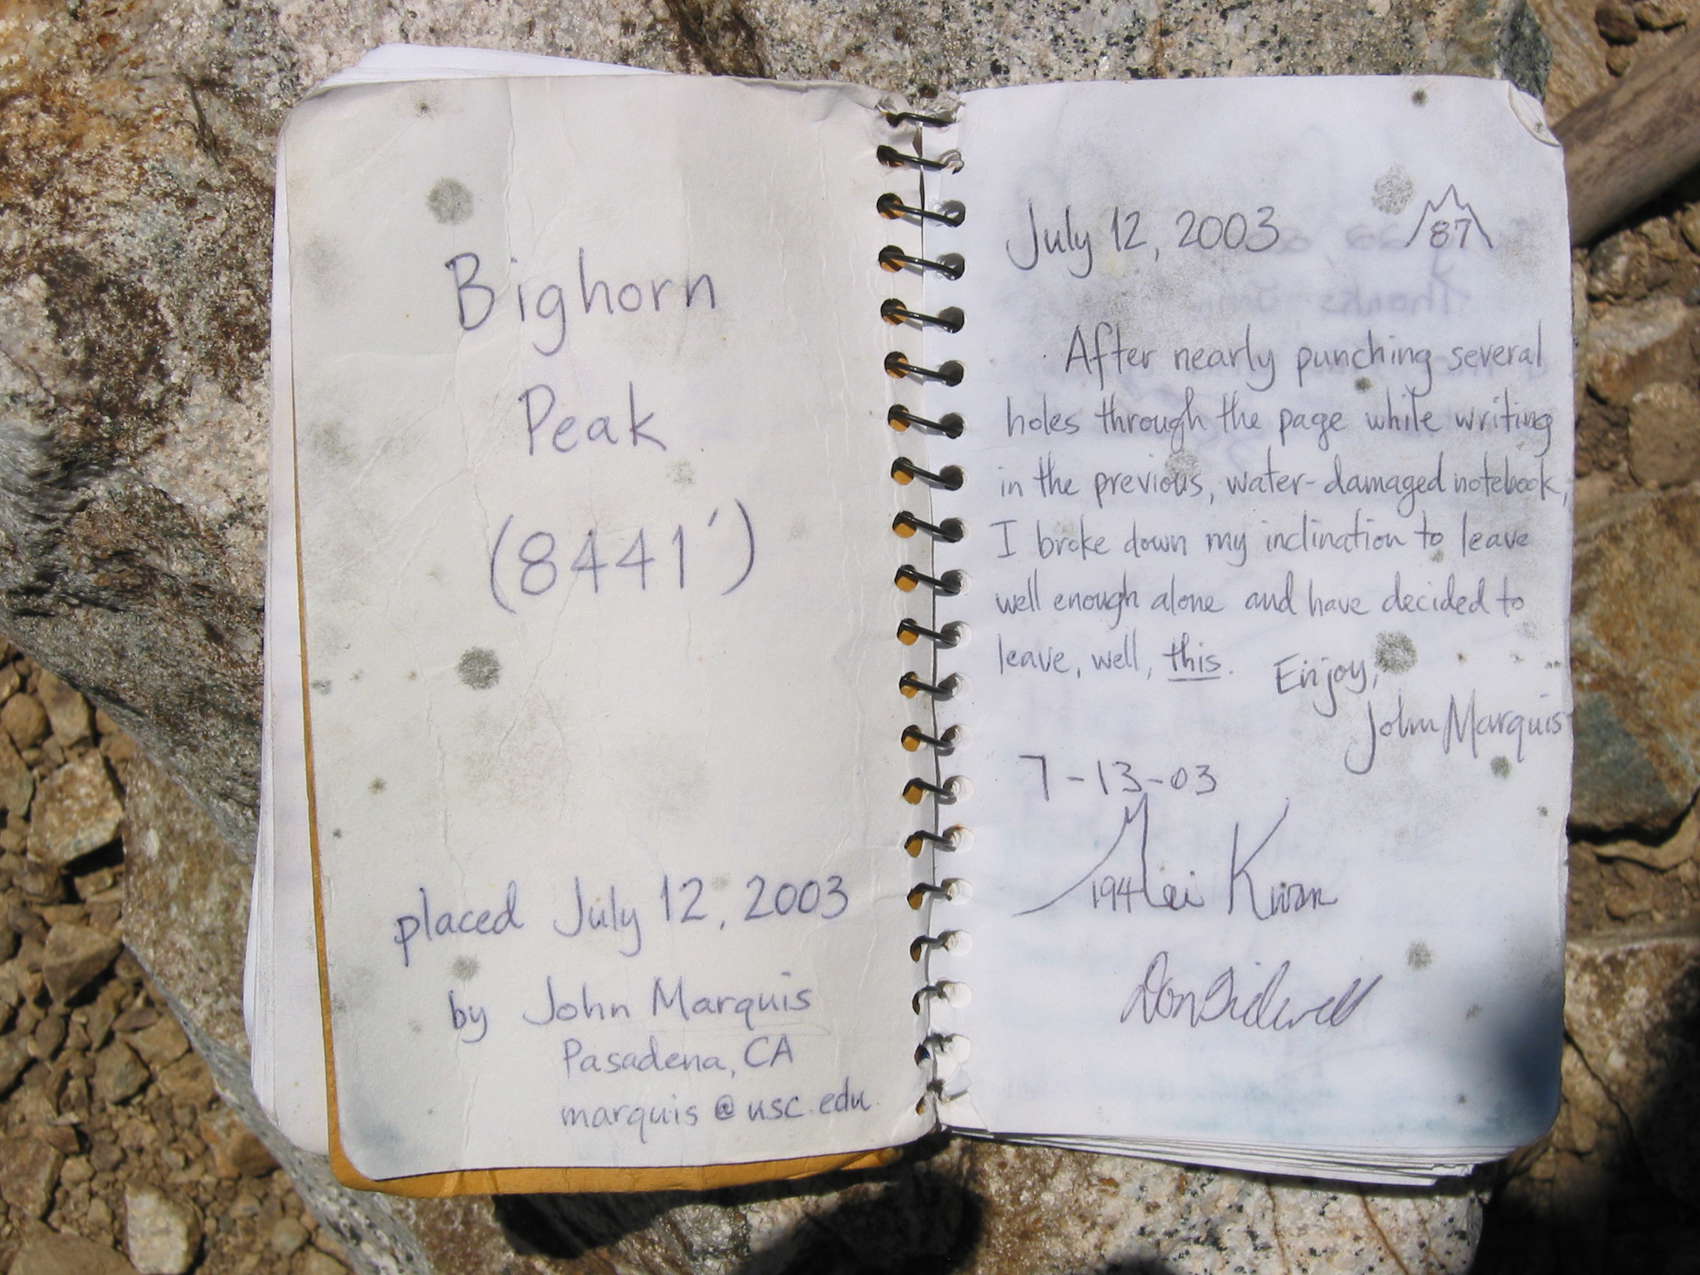 Bighorn
Peak
(8441')
placed July 12, 2003
by John Marquis
Pasadena, CA
marquis@usc.edu
July 12, 2003
87
After nearly punching several
holes through the page while writing
in the previous, water-damaged notebook,
I broke down my inclination to leave
well enough alone and have decided to
leave, well, this. Enjoy,
John Marquis
7-13-03
194 Mei Kwan
Don Bidwell
Thanks